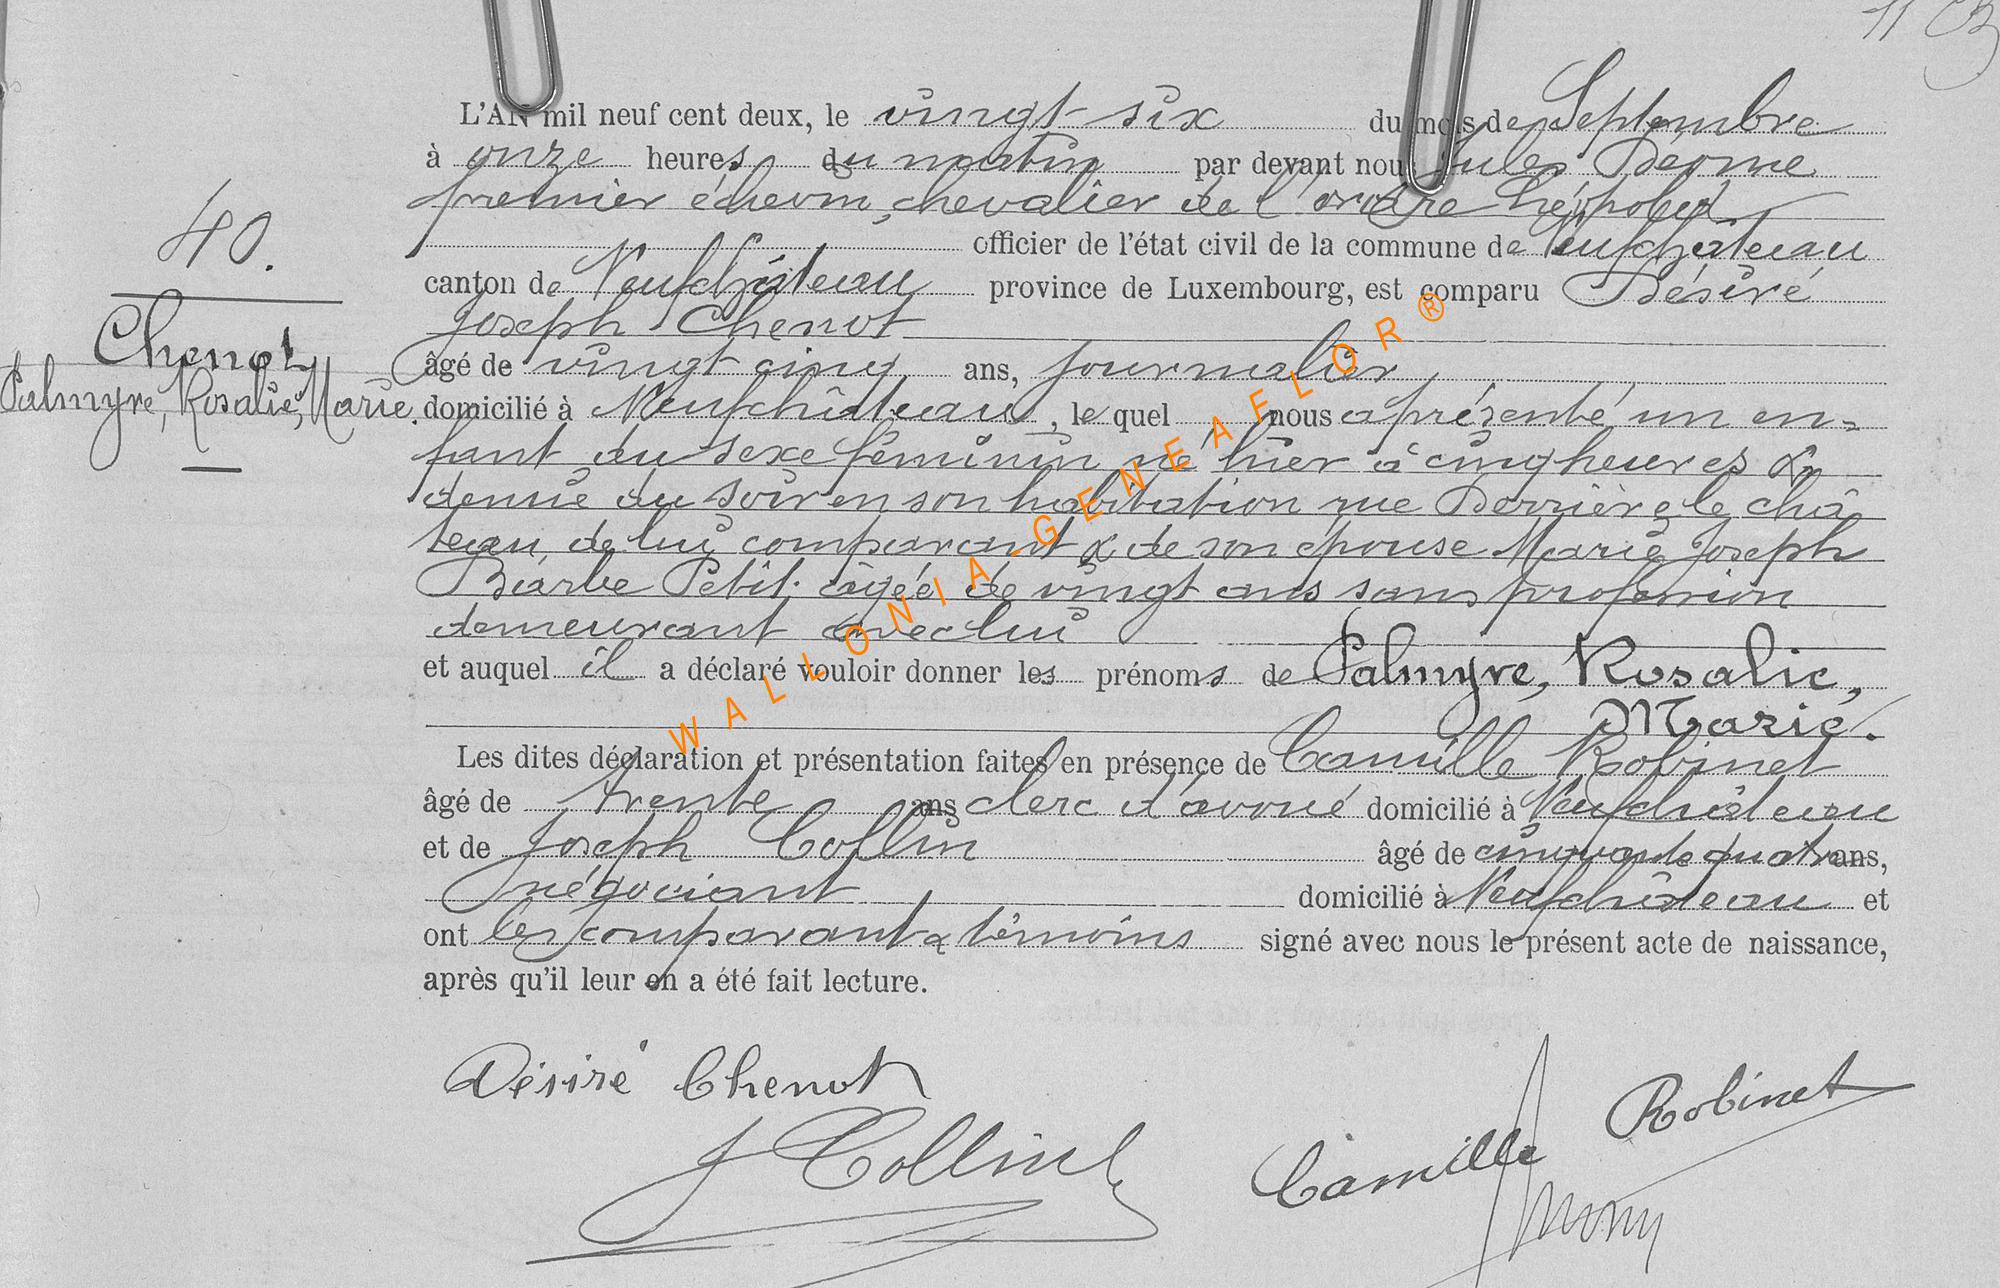 11
L'AN mil neuf cent deux, le vingt-six du mois de Septembre
à onze heures du matin par devant nous Jules
premier échevin, chevalier de l'ordre Léopold
officier de l'état civil de la commune de Neufchâteau
canton de Neufchâteau province de Luxembourg, est comparu Désiré
Joseph Chenot
âgé de vingt-cinq ans, journalier
domicilié à Neufchâteau, le quel nous a présenté un en-
fant du sexe féminin né hier à cinq heures &
demie du soir en son habitation rue Derrière le châ
teau, de lui comparant & de son épouse Marie Joseph
Barbe Petit âgée de vingt ans sans profession
demeurant avec lui
et auquel il a déclaré vouloir donner les prénoms de Palmyre, Rosalie,
Marie.
Les dites déclaration et présentation faites en présence de Camille Robinet
âgé de trente ans clerc d'avoué domicilié à Neufchâteau
et de Joseph Collin âgé de cinquante quatre ans,
négociant domicilié à Neufchâteau et
ont les comparant & témoins signé avec nous le présent acte de naissance,
après qu'il leur en a été fait lecture.
40.
Chenot
Palmyre, Rosalie, Marie.
Désiré Chenot
J Collin
Camille Robinet
WALLONIA-GENEAFLOR®